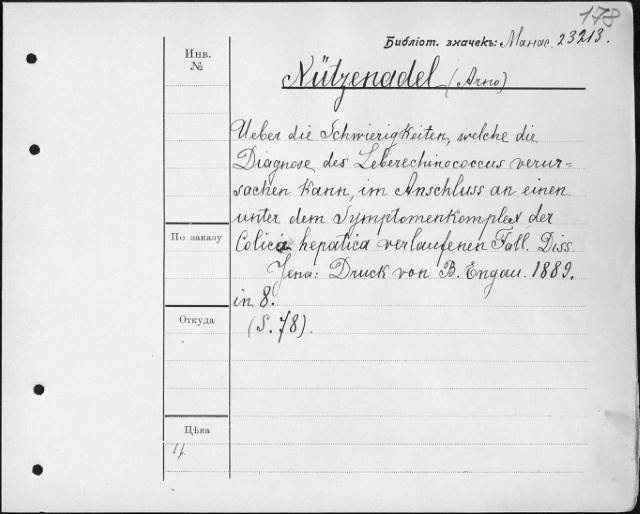 178
Библіот. значекъ: Манас. 23213.
Инв.
№
Nützenadel (Arno)
Ueber die Schwierigkeiten, welche die
Diagnose des Leberechinococcus verur=
sachen kann, im Anschluss an einen
unter dem Symptomenkomplex der
По заказу
Colica hepatica verlaufenen Fall. Diss.
Jena: Druck von B. Engau. 1889.
in 8.
Откуда
(S. 78).
Цѣна